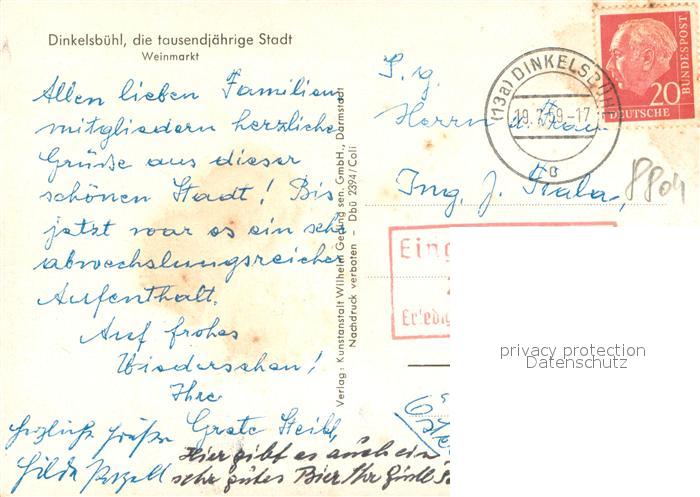 Dinkelsbühl, die tausendjährige Stadt
Weinmarkt
Allen lieben Familien
mitgliedern herzliche
Grüße aus dieser
schönen Stadt! Bis
jetzt war es ein sehr
abwechslungsreicher
Aufenthalt.
Auf frohes
Wiedersehen!
Ihre
Grete
herzliche Grüße
Hilda
Hier gibt es auch ein
sehr gutes Bier Ihr
Verlag: Kunstanstalt Wilhelm Gerling sen. GmbH., Darmstadt
Nachdruck verboten - Dbü 2394/Coli
S. g.
Herrn u. Frau
Ing. J.
(13a) DINKELSBÜHL
19.7.59.-17
a
20
DEUTSCHE
BUNDESPOST
8804
Eing
Erledig
privacy protection
Datenschutz